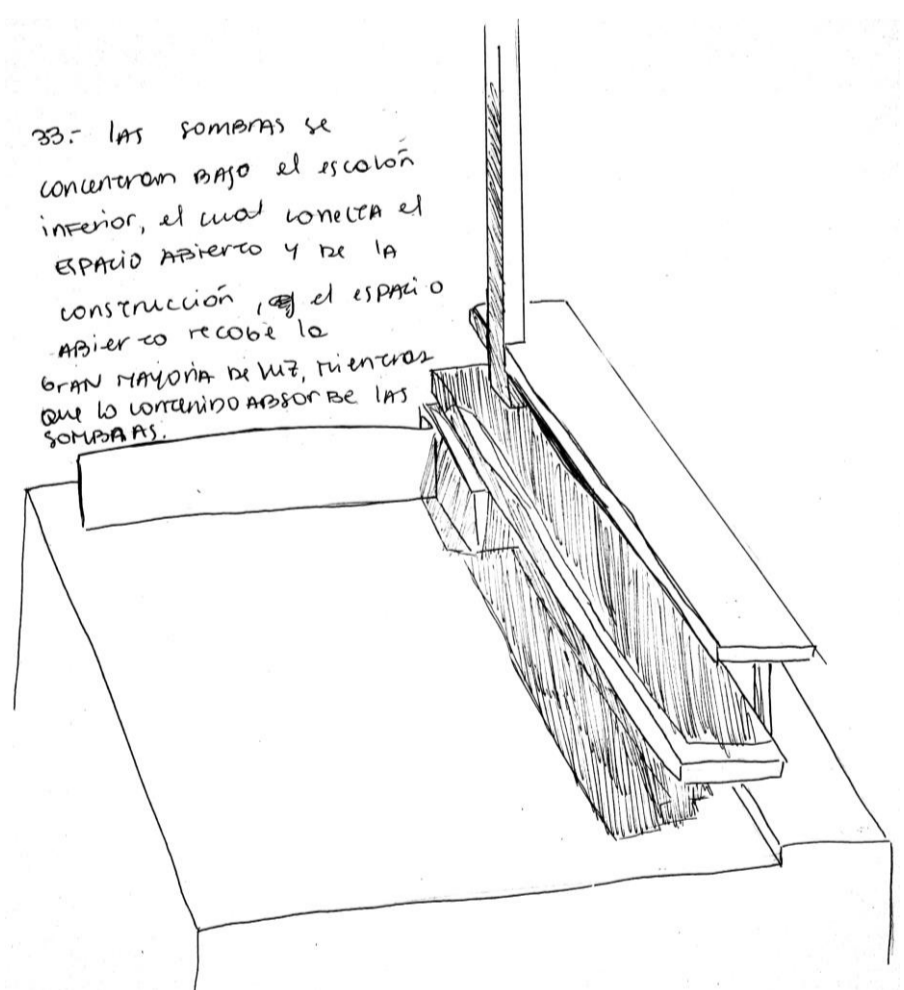 33.- LAS SOMBRAS se
concentran BAJO el escalón
inferior, el cual conecta el
ESPACIO ABierto y De la
construcción, el ESPACIO
ABierto recobe la
GRAN MAYORIA De luz, mientras
que lo contenido ABSORBe LAS
SOMBRAS.